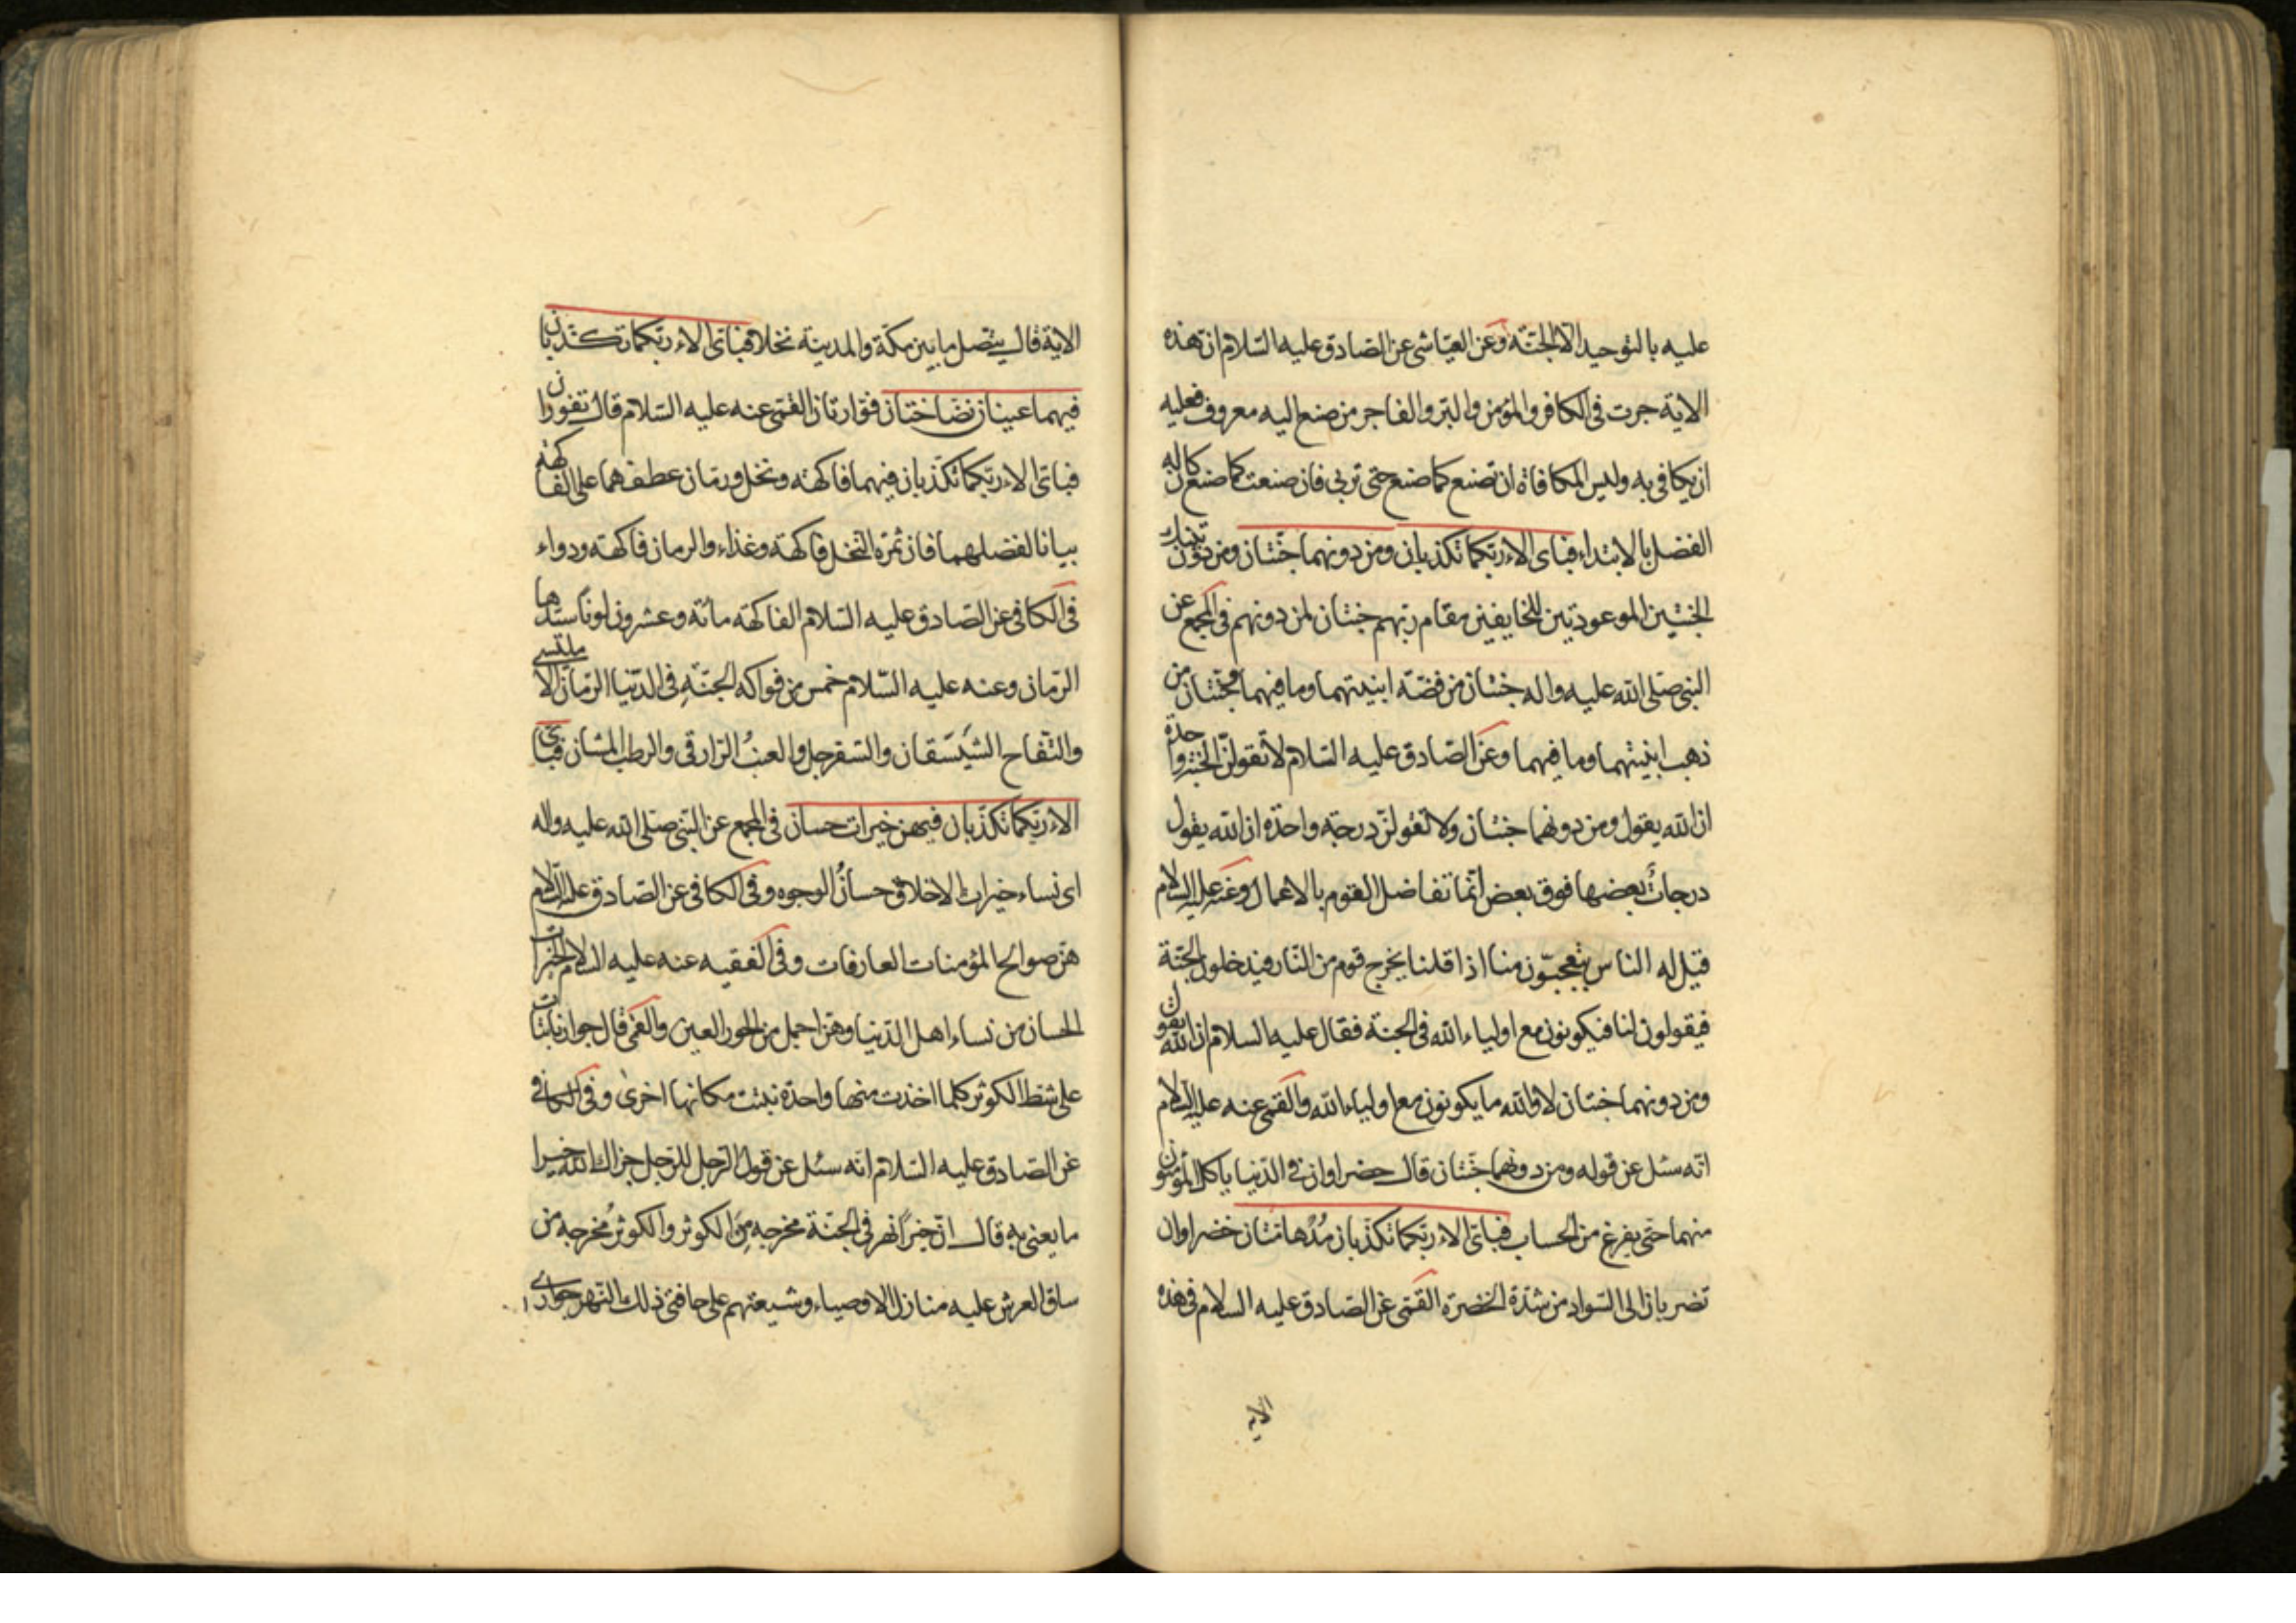 عليه بالتوحيد الا الجنّة وعن العيّاشى عن الصّادق عليه السّلام ان هذه
الاية جرت فى الكافر والمؤمن والبرّ والفاجر من صنع اليه معروف فعليه
ان يكافى به وليس المكافاة ان تصنع كما صنع حتى تربى فان صنعت كما صنع كان له
الفضل بالابتداء فباى الاء ربّكما تكذبان ومن دونهما جنّتان ومن دون تينك
الجنتين الموعودتين للخايفين مقام ربّهم جنتان لمن دونهم فى المجمع عن
النبى صلى الله عليه واله جنتان من فضّة ابنيتهما وما فيهما وجنتان من
ذهب ابنيتهما وما فيهما وعن الصّادق عليه السّلام لا تقولنّ الجنّة واحدة
ان الله يقول ومن دونهما جنتان ولا تقولنّ درجة واحدة ان الله يقول
درجات بعضها فوق بعض انّما تفاضل القوم بالاعمال وعنه عليه السلام
قيل له الناس يتعجبّون منا اذا قلنا يخرج قوم من النّار فيدخلون الجنّة
فيقولون لنا فيكونون مع اولياء الله فى الجنة فقال عليه السلام ان الله يقول
ومن دونهما جنتان لا والله ما يكونون مع اولياء الله والقمى عنه عليه السلام
انّه سئل عن قوله ومن دونهما جنّتان قال خضراوان فى الدّنيا ياكل المؤمنون
منهما حتى يفرغ من الحساب فباىّ الاء ربّكما تكذّبان مُدْهامّتان خضراوان
تضربان الى السّواد من شدّة الخضرة القمّى عن الصّادق عليه السلام فى هذه
الاية قال يتّصل ما بين مكّة والمدينة نخلا فباىّ الاء ربّكما تكذّبان
فيهما عينان نضّاختان فوّارتان القمى عنه عليه السّلام قال تفوران
فباىّ الاء ربّكما تكذّبان فيهما فاكهة ونخل ورمّان عطفهما على الفاكهة
بيانا لفضلهما فان ثمرة النّخل فاكهة وغذاء والرمان فاكهة ودواء
فى الكافى عن الصّادق عليه السّلام الفاكهة مائة وعشرون لونا سيّدها
الرّمان وعنه عليه السّلام خمس من فواكه الجنّة فى الدّنيا الرّمان الامليسى
والتّفاح الشّيسقان والسّفرجل والعنب الرّازقى والرطب المشان فباىّ
الاء ربّكما تكذّبان فيهن خيرات حسان فى المجمع عن النّبى صلى الله عليه واله
اى نساء خيرات الاخلاق حسانُ الوجوه وفى الكافى عن الصّادق عليه السلام
هنّ صوالح المؤمنات العارفات وفى الفقيه عنه عليه السلام الخيرات
الحسان من نساء اهل الدّنيا وهنّ اجمل من الحور العين والقمى قال جوار نابتات
على شطّ الكوثر كلما اخذت منها واحدة نبتت مكانها اخرى وفى الكافى
عن الصّادق عليه السّلام انّه سئل عن قول الرّجل للرّجل جزاك الله خيرا
ما يعنى به قال انّ خيرًا نهر فى الجنّة مخرجه من الكوثر والكوثر مُخرجه من
ساق العرش عليه منازل الاوصياء وشيعتهم على حافتى ذلك النّهر جوارى